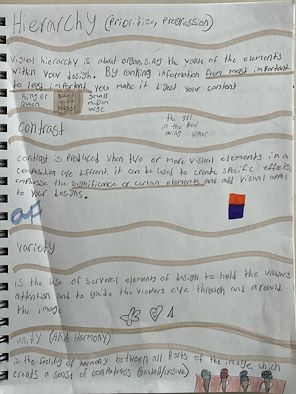 Hierarchy (Prioritize, Progression)
Visual hierarchy is about organising the value of the elements
within your design. By ranking information from most important
to least important, you make it digest your content
King or
Queen
small
medium
large
contrast
contrast is produced when two or more visual elements in a
composition are different. it can be used to create specific effects,
emphasise the significance or certain elements and add visual appeal
to your designs.
variety
is the use of serveral elements of design to hold the viewers
attention and to guide the viewers eye through and around
the image
unity (AKA Harmony)
is the feeling of harmony between all parts of the image, which
creats a sense of completeness